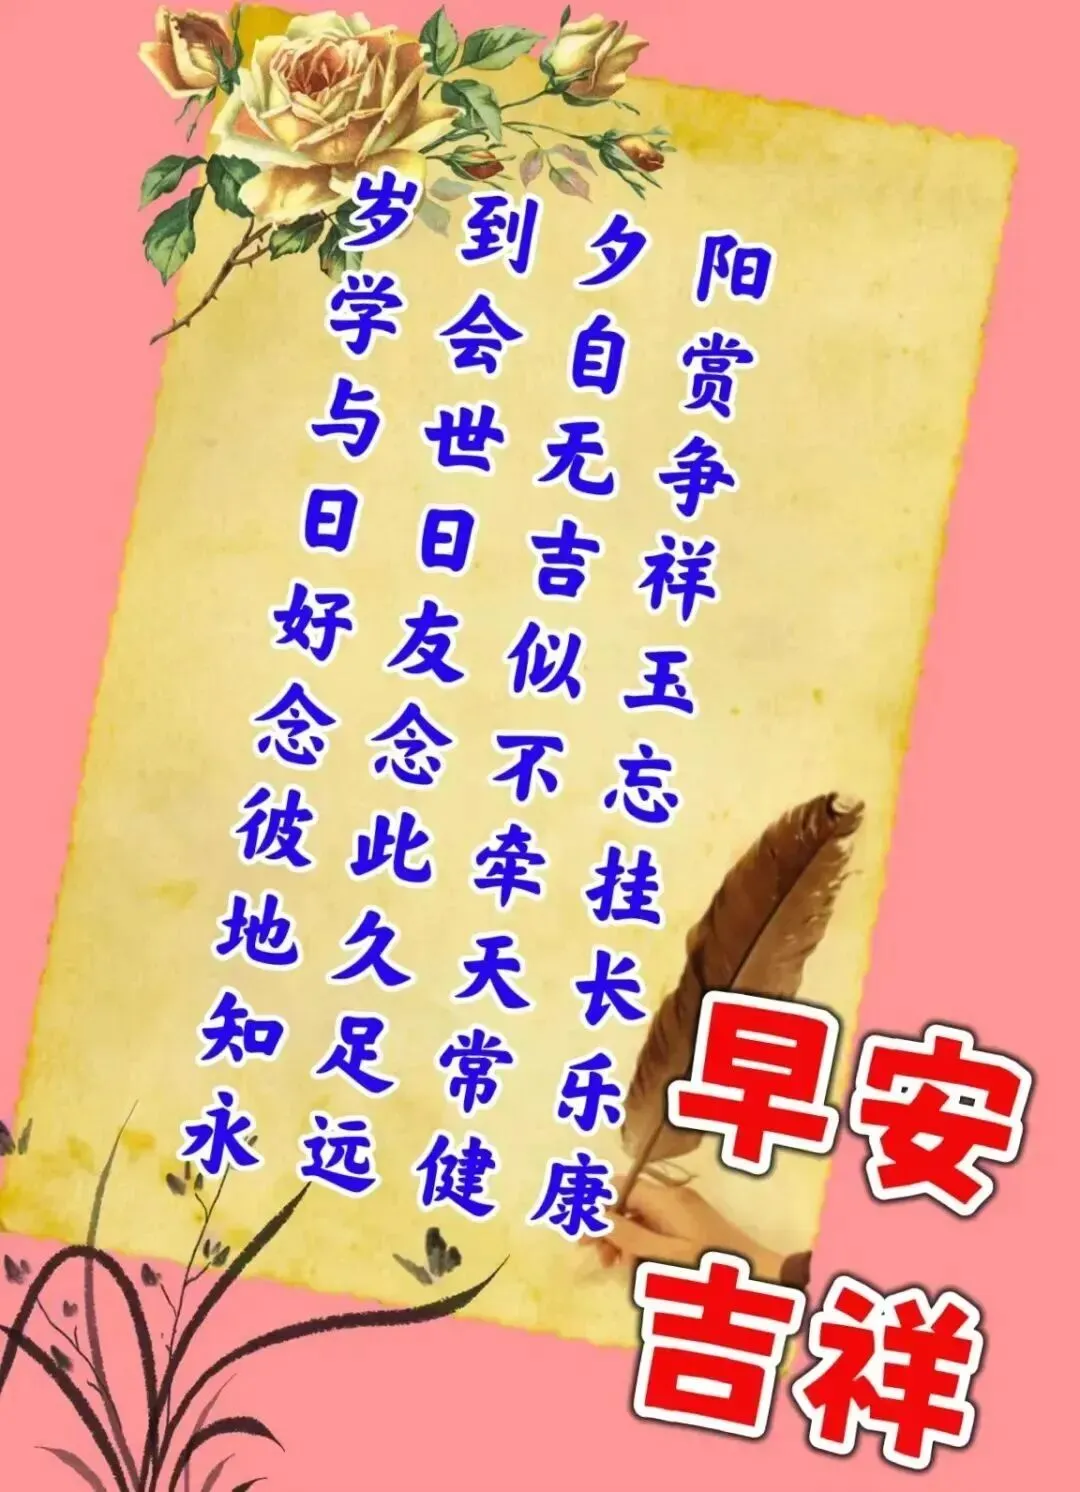 岁到夕阳
学会自赏
与世无争
日日吉祥
好友似玉
念念不忘
彼此牵挂
地久天长
知足常乐
永远健康
早安
吉祥